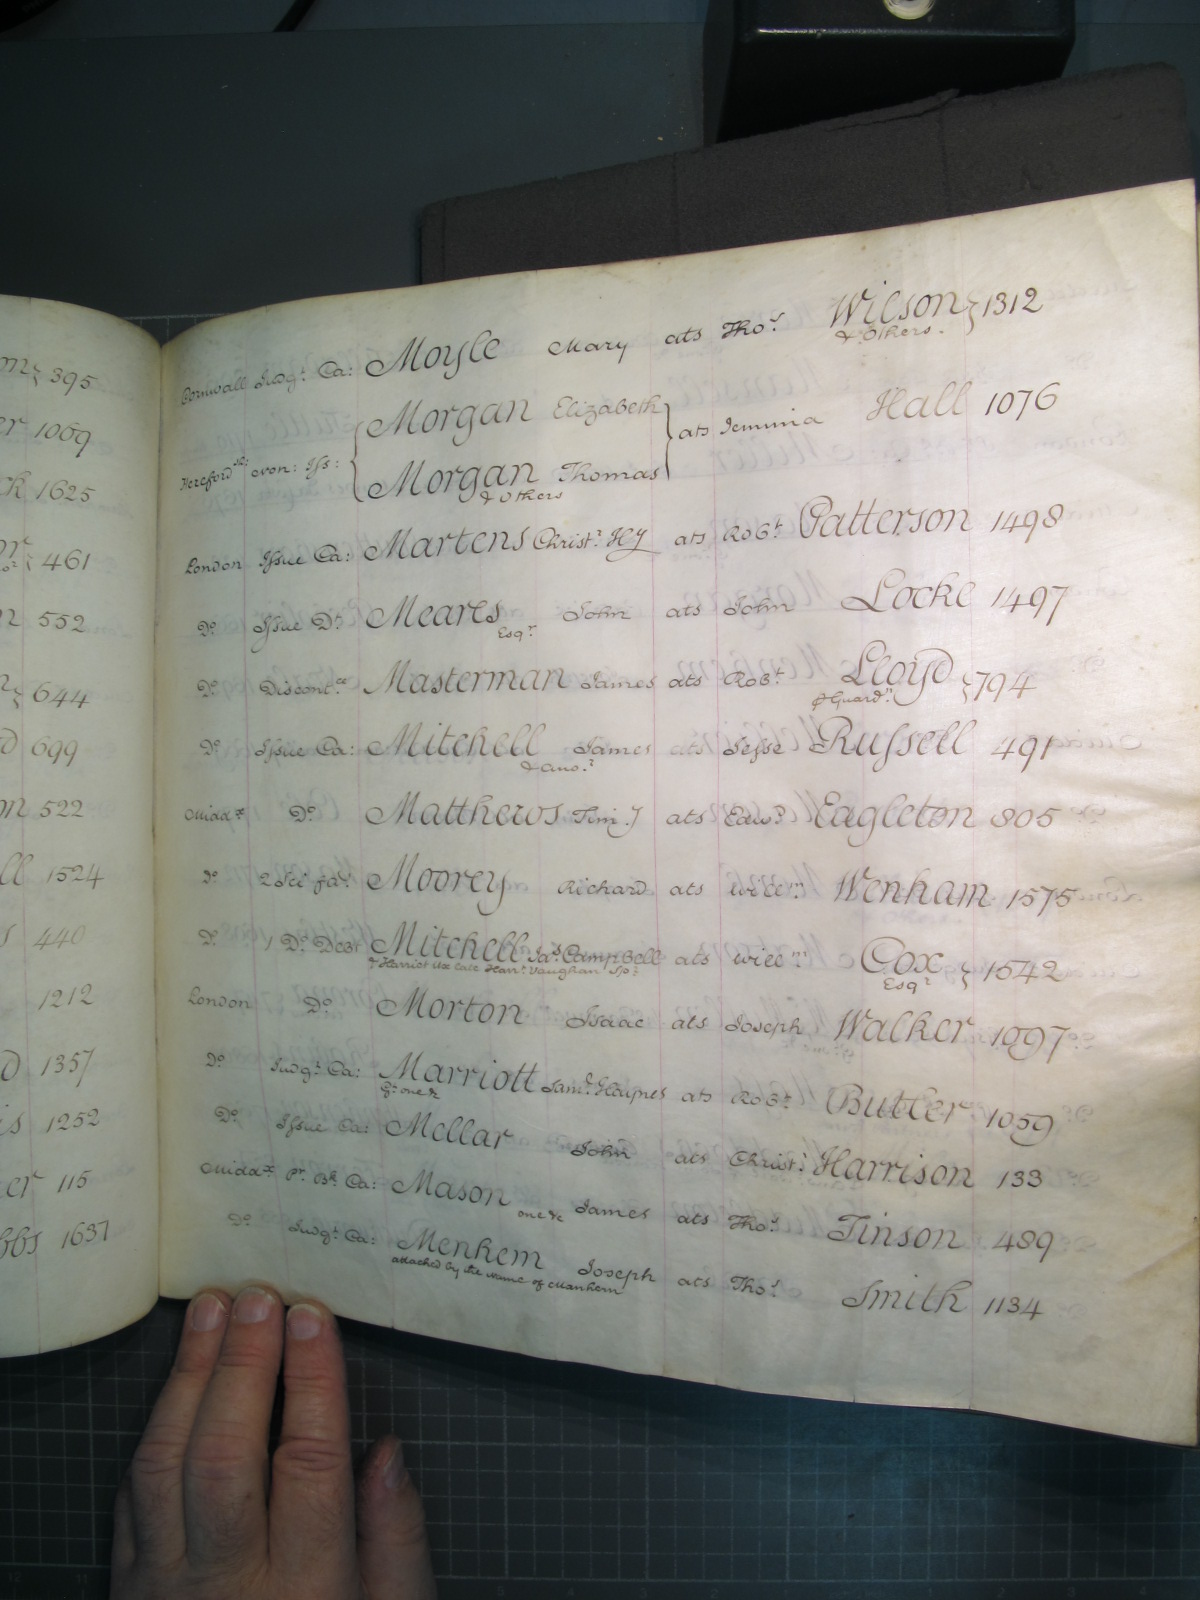 395
1069
1625
461
552
644
699
522
1524
440
1212
1357
1252
115
1637
Cornwall Judgt. Ca: Moyle Mary ats Thos. Wilson & Others. } 1312
Hereford non: Iss: { Morgan Elizabeth
Morgan Thomas & Others } ats Jemima Hall 1076
London Issue Ca: Martens Christr. Hy ats Robt. Patterson 1498
Do. Issue Do. Meares Esqr. John ats John Locke 1497
Do. Discontce. Masterman James ats Robt. Lloyd & Guardn. } 794
Do. Issue Ca: Mitchell & ano.r James ats Jesse Russell 491
Middx. Do. Matthews Timy ats Edwd. Eagleton 805
Do. 2 Sci fas. Moorey Richard ats Willm. Wenham 1575
Do. 1 Do. Debt Mitchell Jas. Campbell ats Willm. Cox Esqr. } 1542
& Harriet Ux late Harrt. Vaughan Spr.
London Do. Morton Isaac ats Joseph Walker 1097
Do. Judgt. Ca: Marriott Gt. one &c Saml. Haynes ats Robt. Butler 1059
Do. Issue Ca: Mellar John ats Christr. Harrison 133
Middx. Pr. Bk. Ca: Mason one &c James ats Thos. Tinson 489
Do. Judgt. Ca: Menhem Joseph ats Thos. Smith 1134
attached by the Name of Manhem